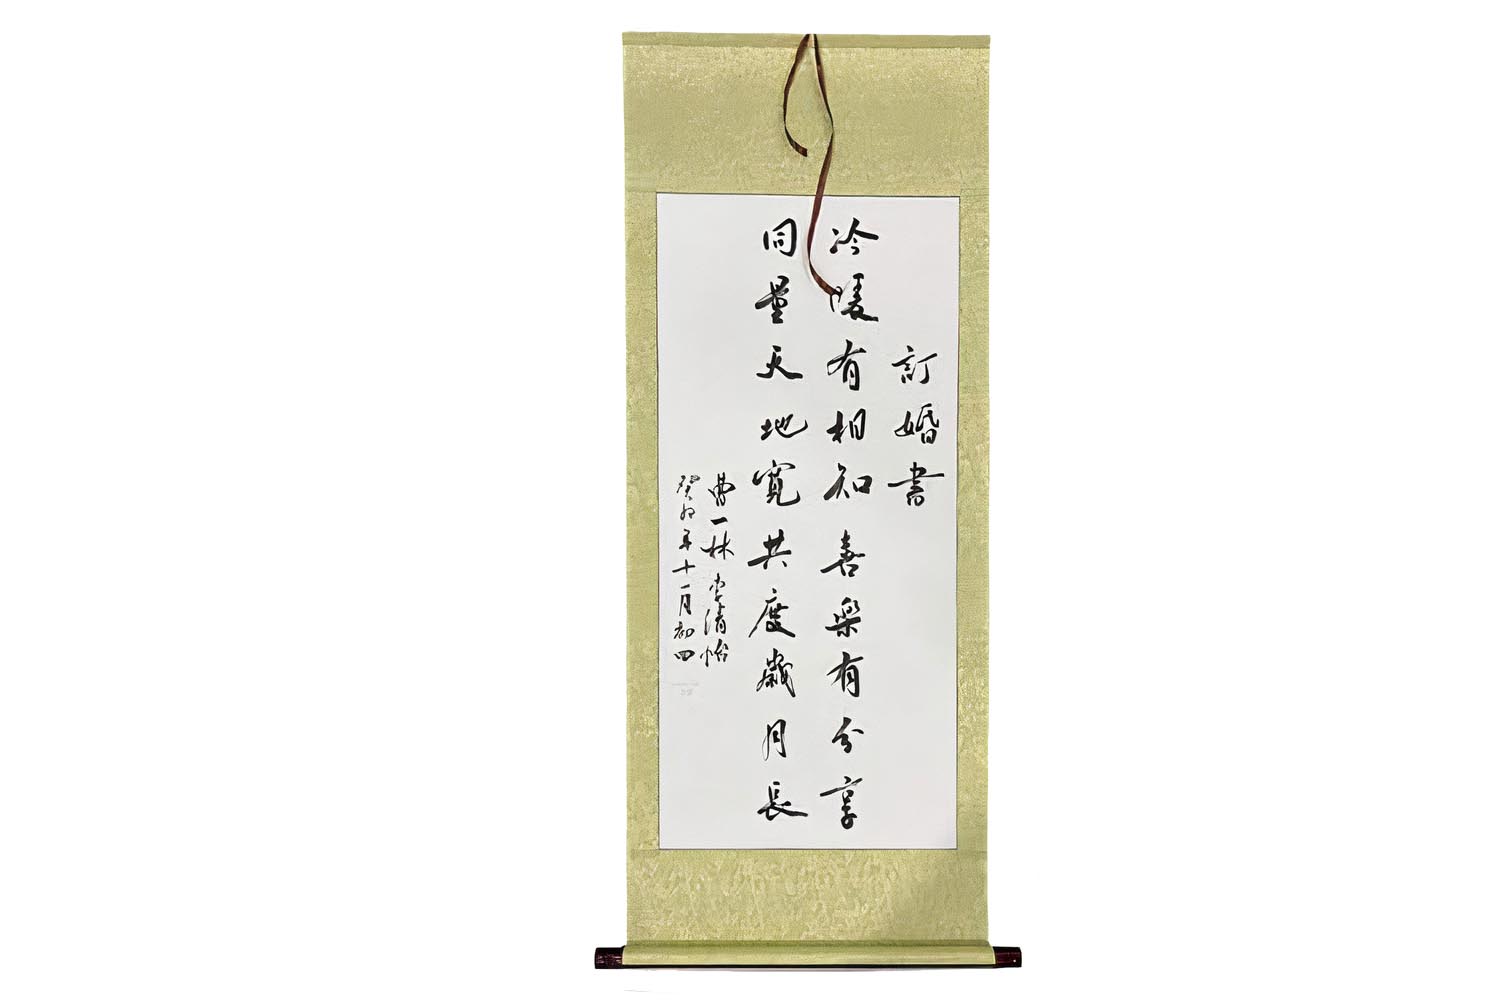 訂婚書
冷暖有相知喜樂有分享
同量天地寬共度歲月長
曹一林 李清怡
癸卯年十一月初四